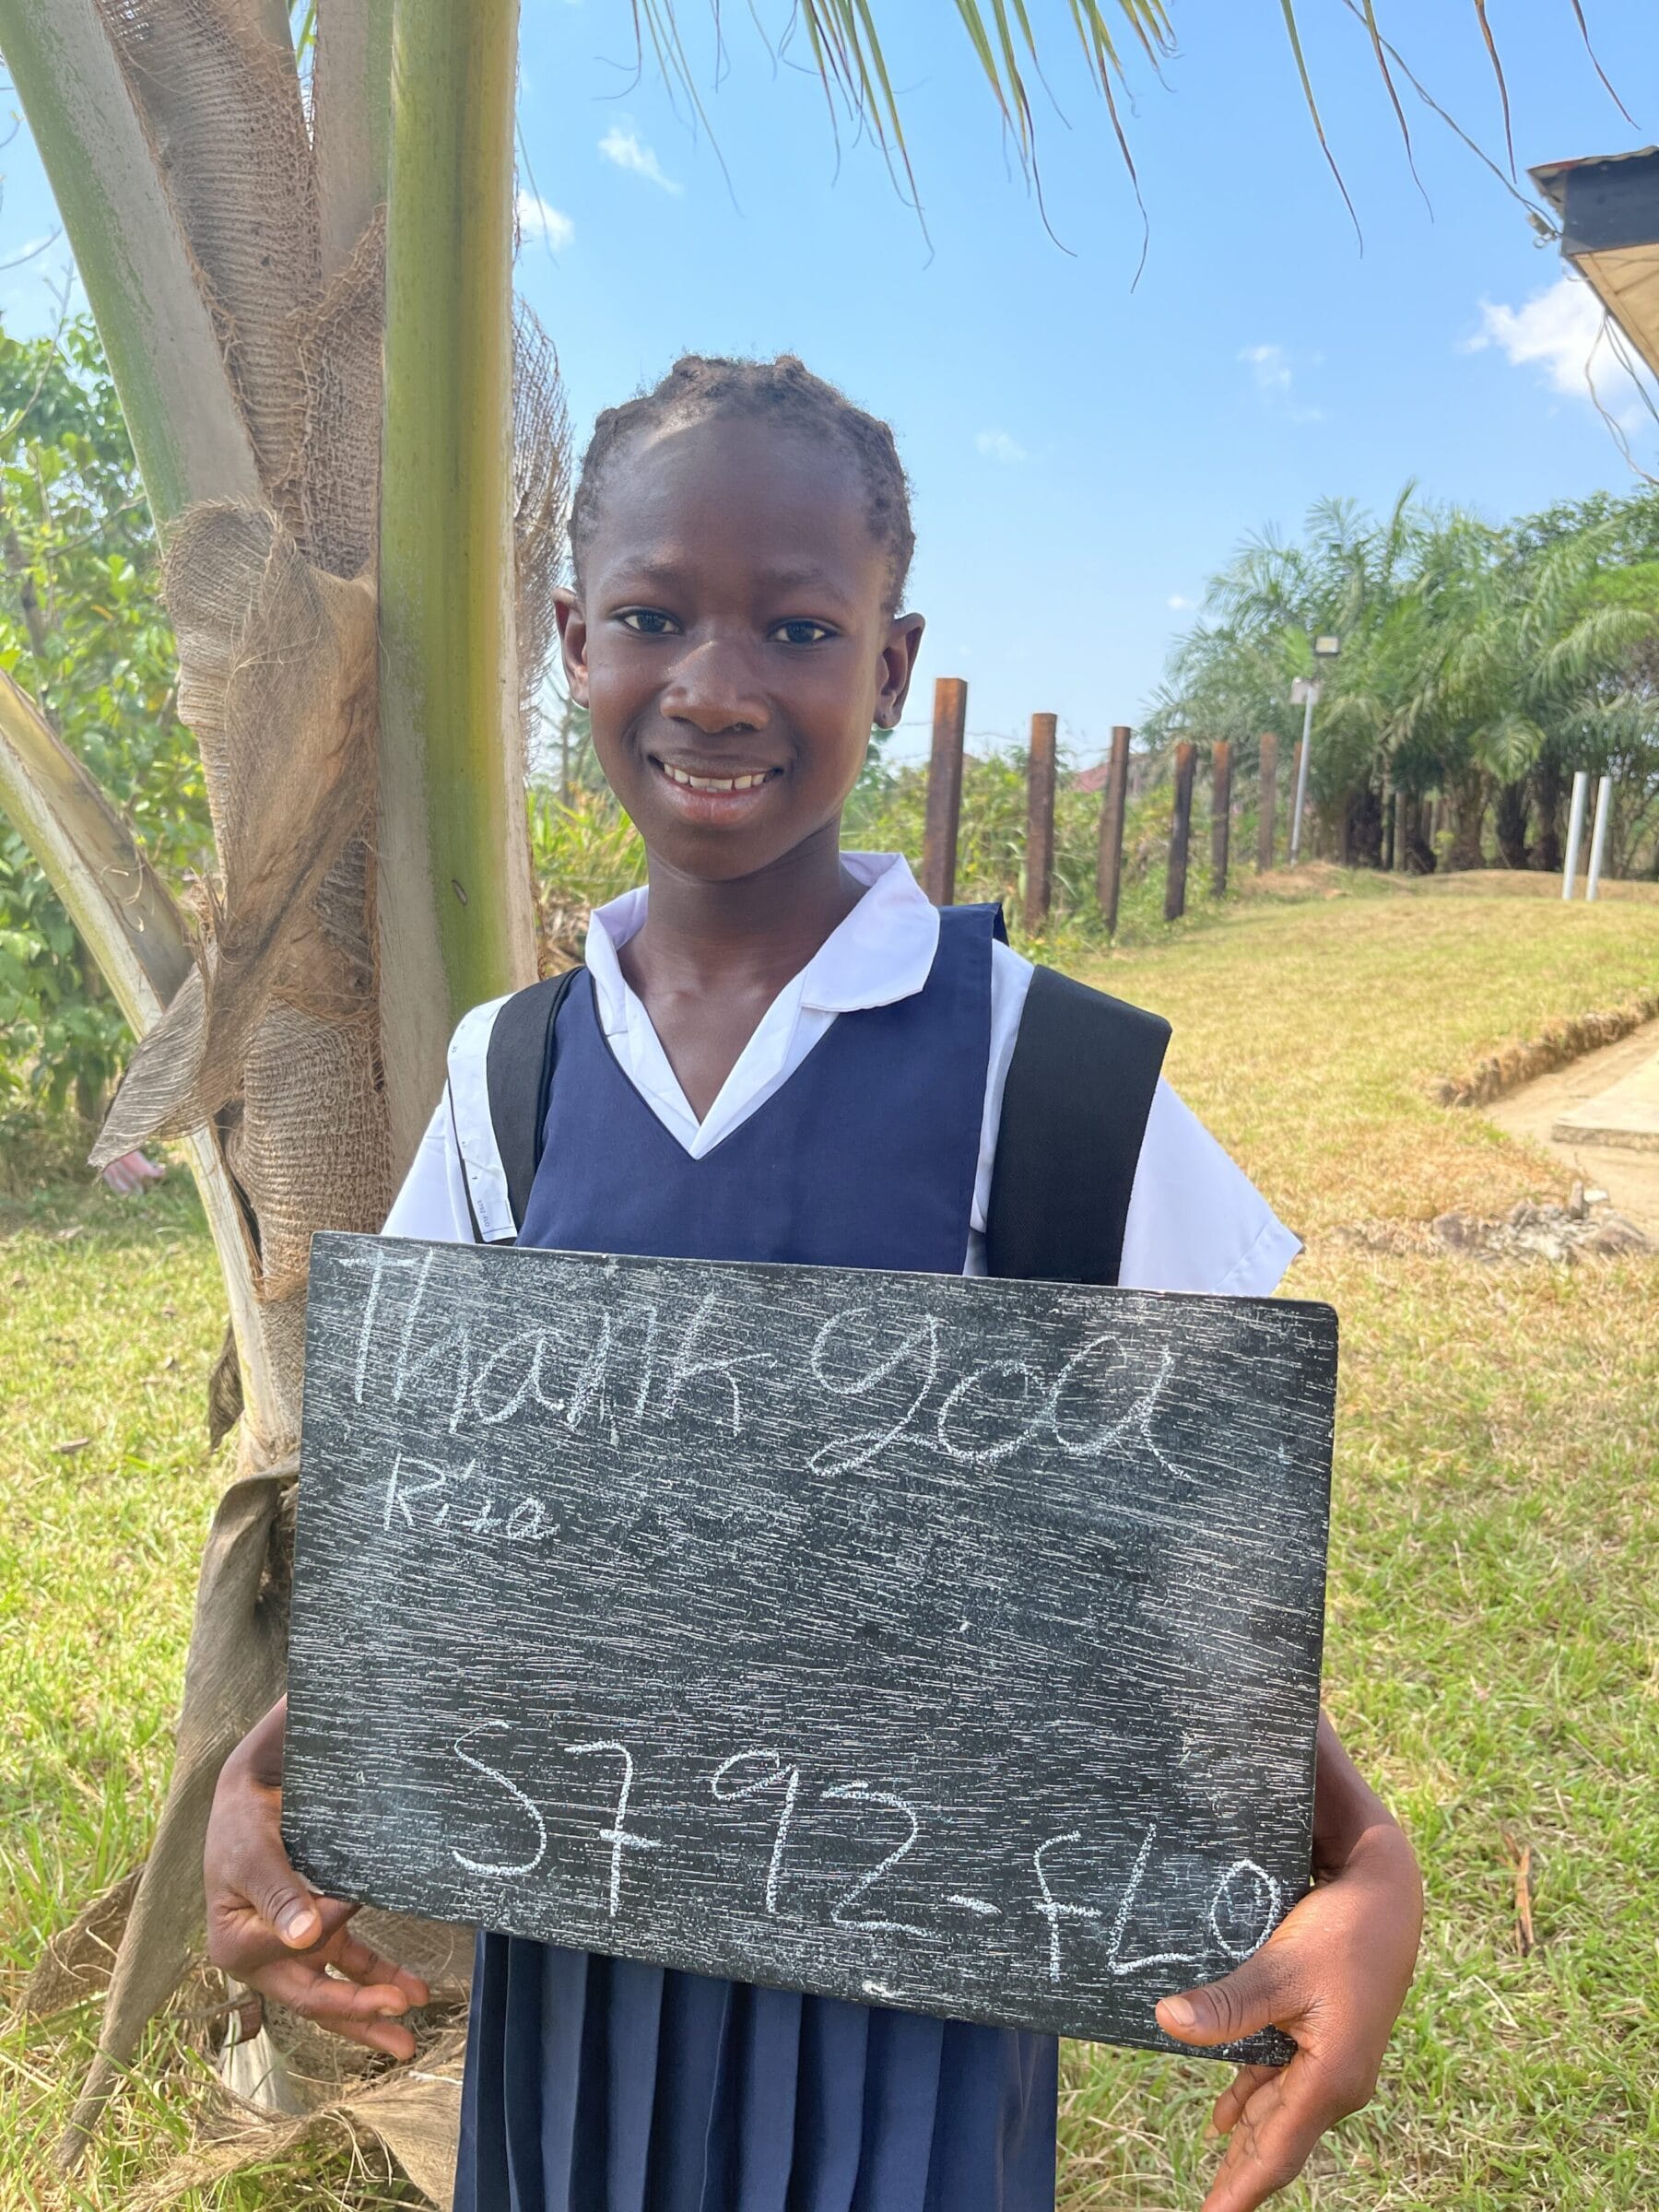 Thank you
Risa
5792-fLO